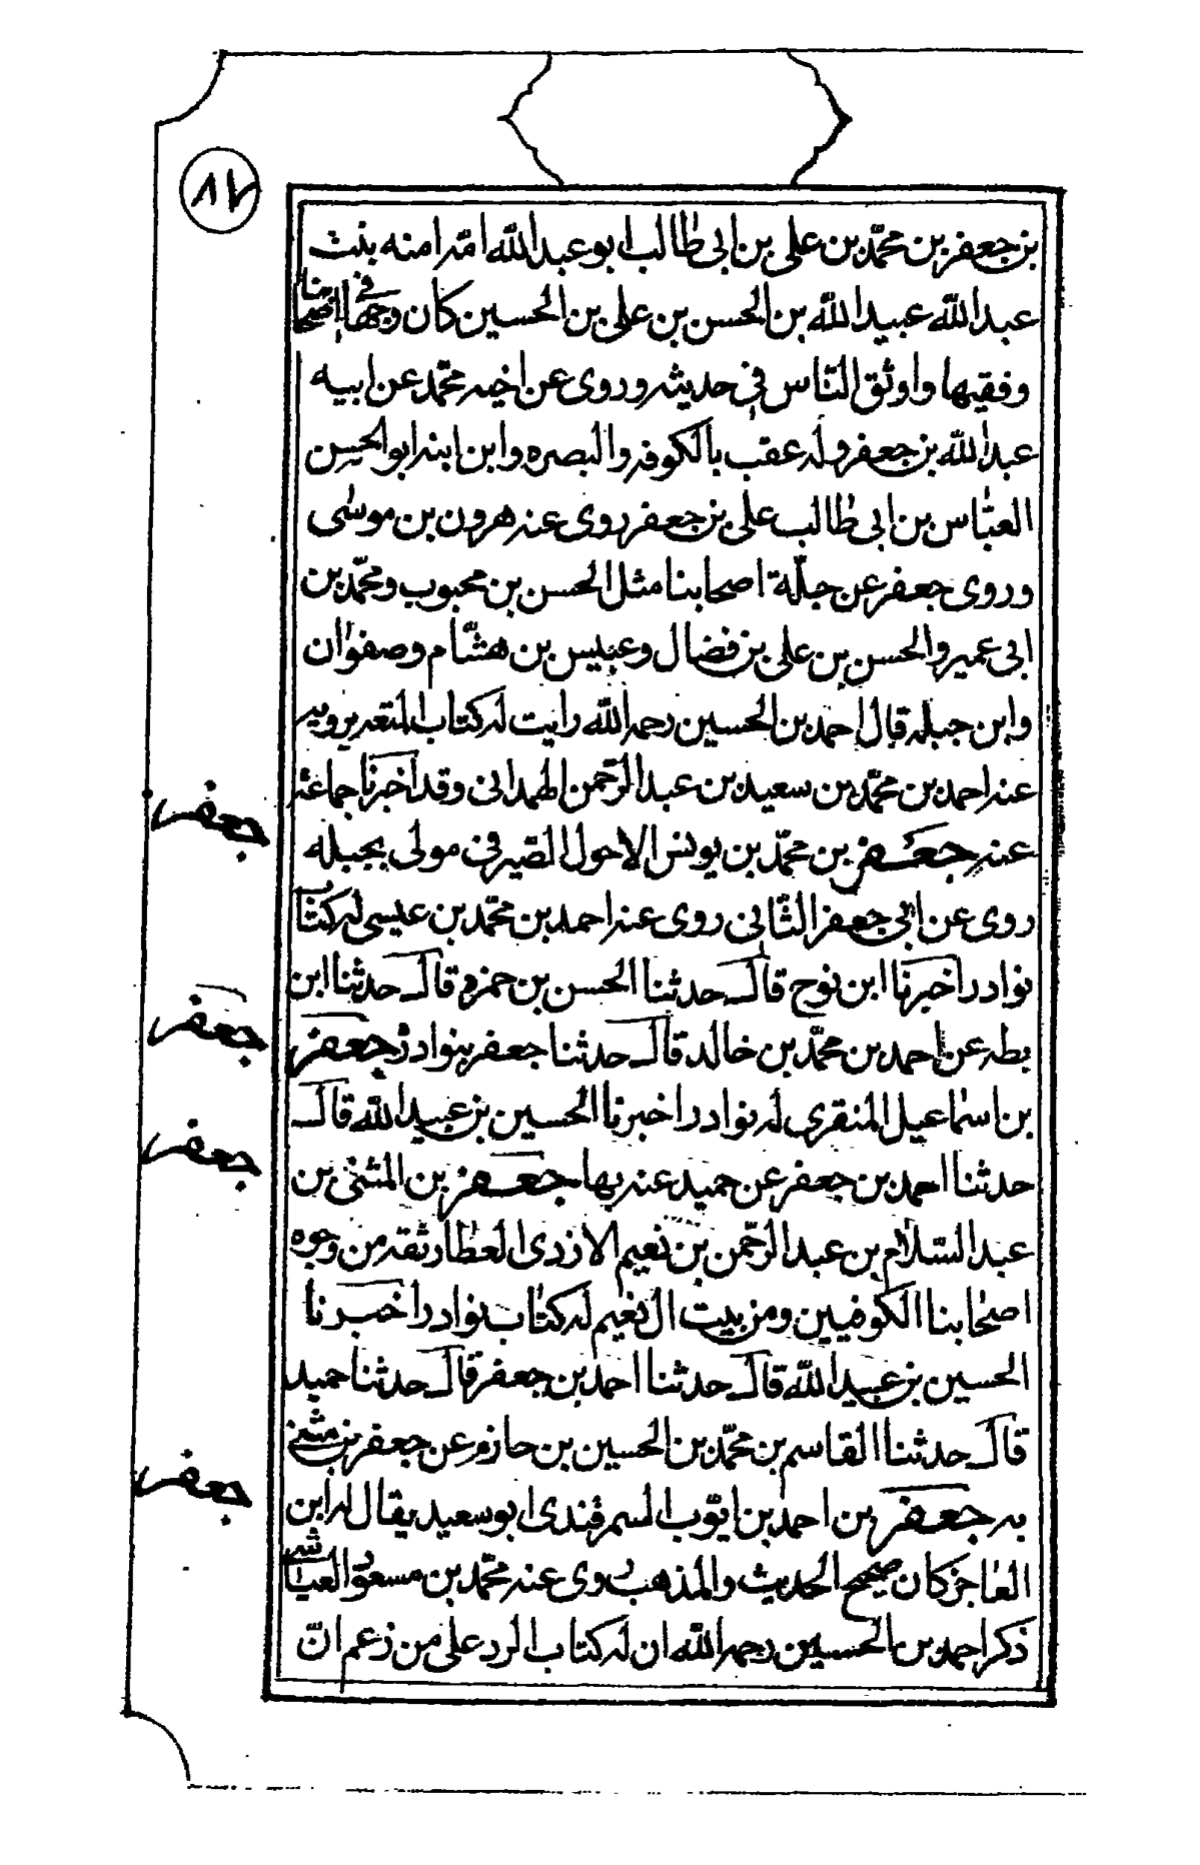 ٨٧
بن جعفر بن محمّد بن على بن ابى طالب ابو عبد الله امّه امنه بنت
عبد الله عبيد الله بن الحسن بن على بن الحسين كان وجها فى اصحابنا
وفقيها واوثق النّاس فى حديثه وروى عن اخيه محمّد عن ابيه
عبد الله بن جعفر وله عقب بالكوفه والبصره وابن ابنه ابو الحسن
العبّاس بن ابى طالب على بن جعفر روى عنه هرون بن موسى
وروى جعفر عن جلّة اصحابنا مثل الحسن بن محبوب ومحمّد بن
ابى عمير والحسن بن على بن فضال وعبيس بن هشّام وصفوان
وابن جبله قال احمد بن الحسين رحمه الله رايت له كتاب المتعه يرويه
عنه احمد بن محمّد بن سعيد بن عبد الرّحمن الهمدانى وقد اخبرنا جماعة
عنه جعفر بن محمّد بن يونس الاحول الصّيرفى مولى بجيله
روى عن ابى جعفر الثّانى روى عنه احمد بن محمّد بن عيسى له كتاب
نوادر اخبرنا ابن نوح قال حدثنا الحسن بن حمزه قال حدثنا ابن
بطه عن احمد بن محمّد بن خالد قال حدثنا جعفر بنوادره جعفر
بن اسماعيل المنقرى له نوادر اخبرنا الحسين بن عبيد الله قال
حدثنا احمد بن جعفر عن حميد عنه بها جعفر بن المثنى بن
عبد السّلام بن عبد الرّحمن بن نعيم الازدى العطار ثقه من وجوه
اصحابنا الكوفيين ومن بيت ال نعيم له كتاب نوادر اخبرنا
الحسين بن عبيد الله قال حدثنا احمد بن جعفر قال حدثنا حميد
قال حدثنا القاسم بن محمّد بن الحسين بن حازم عن جعفر بن مثنى
به جعفر بن احمد بن ايّوب السمرقندى ابو سعيد يقال له ابن
العاجز كان صحيح الحديث والمذهب روى عنه محمّد بن مسعود العياشى
ذكر احمد بن الحسين رحمه الله ان له كتاب الرد على من زعم انّ
جعفر
جعفر
جعفر
جعفر